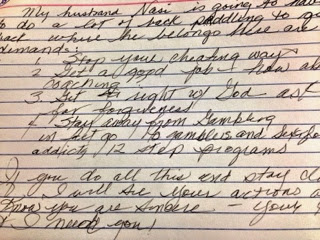 My husband Nasi is going to hav
to do a lot of back paddling to g
back where he belongs Here are
demands:
1. Stop your cheating ways
2. Get a good job - how ab
coaching
3. Get right w/ God ask
for forgiveness
4 Stay away from Gambling
in fact go to gamblers and sex
addicts / 12 step programs
If you do all this and stay cl
I will see your actions a
Know you are sincere - your
I need you!